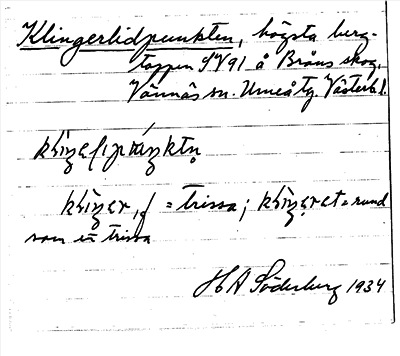 Klingerlidpunkten, högsta berg-
toppen 59/91 å Bråns skog,
Vännäs sn. Umeå tg. Västerb l.
klìŋeɽɩpúŋktn̥
klìŋer, f = trissa; klìŋret = rund
som en trissa
H A Söderberg 1934